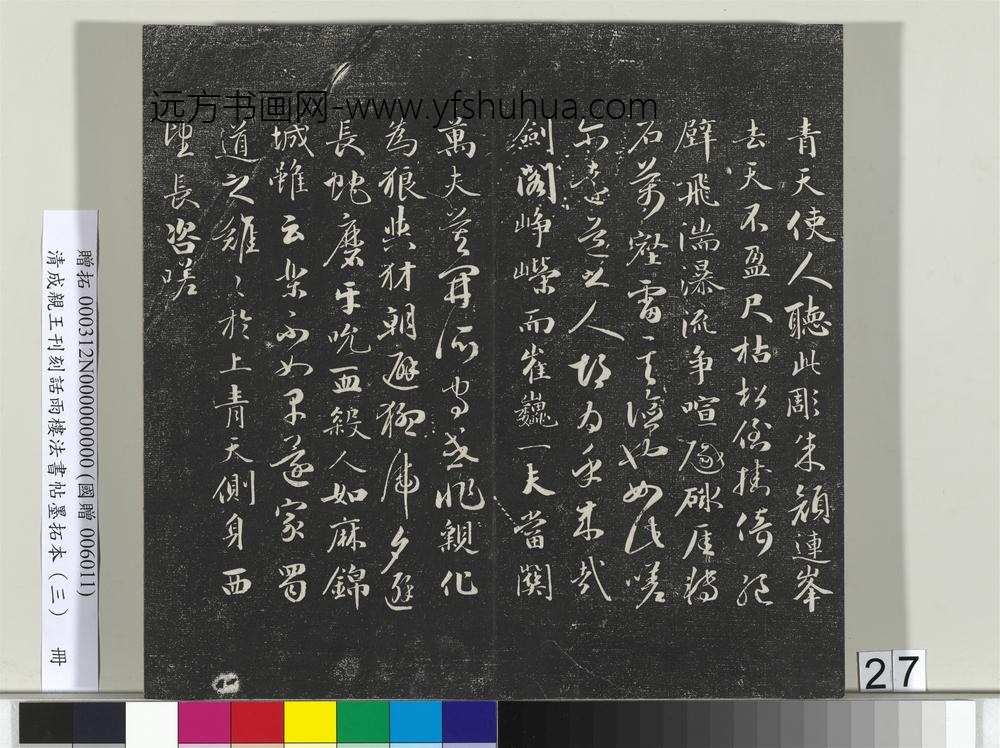 远方书画网-www.yfshuhua.com
青天使人聽此彫朱顏連峯
去天不盈尺枯松倒挂倚絕
壁飛湍瀑流爭喧豗砯厓轉
石萬壑雷其險也如此嗟
爾遠道之人胡為乎來哉
劍閣崢嶸而崔巍一夫當關
萬夫莫開所守或匪親化
為狼與豺朝避猛虎夕避
長蛇磨牙吮血殺人如麻錦
城雖云樂不如早還家蜀
道之難〻於上青天側身西
望長咨嗟
贈拓 000312N000000000 (國贈 006011)
清成親王刊刻話雨樓法書帖墨拓本（三） 冊
27